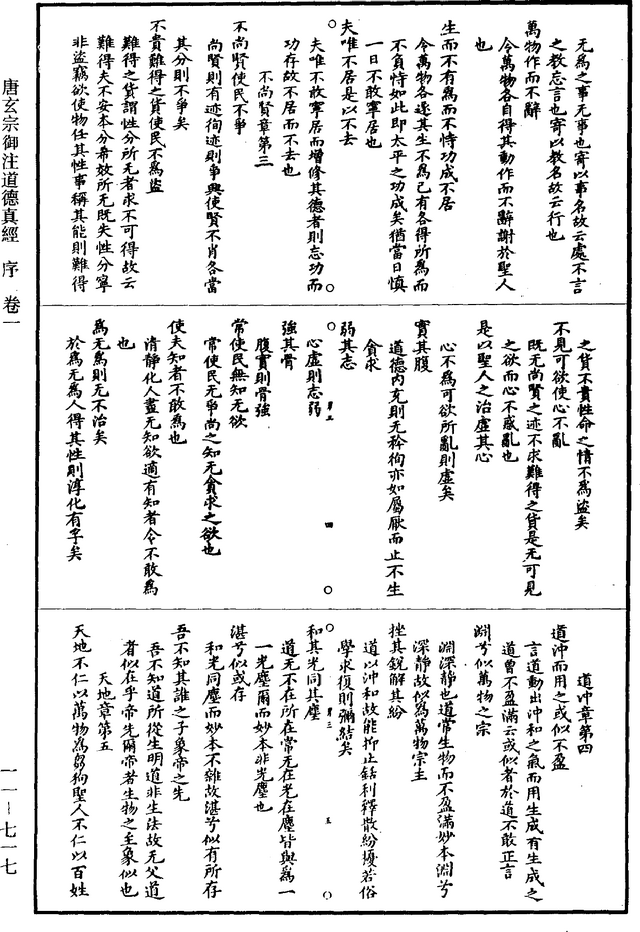 唐玄宗御注道德真經 序 卷一
一一-七一七
无為之事无事也寄以事名故云處不言
之教忘言也寄以教名故云行也
萬物作而不辭
令萬物各自得其動作而不辭謝於聖人
也
生而不有為而不恃功成不居
令萬物各遂其生不為己有各得所為而
不負恃如此即太平之功成矣猶當日慎
一日不敢寧居也
夫唯不居是以不去
夫唯不敢寧居而增修其德者則忘功而
功存故不居而不去也
不尚賢章第三
不尚賢使民不爭
尚賢則有迹徇迹則爭興使賢不肖各當
其分則不爭矣
不貴難得之貨使民不為盜
難得之貨謂性分所无者求不可得故云
難得夫不安本分希效所无既失性分寧
非盜竊欲使物任其性事稱其能則難得
之貨不貴性命之情不為盜矣
不見可欲使心不亂
既无尚賢之迹不求難得之貨是无可見
之欲而心不惑亂也
是以聖人之治虛其心
心不為可欲所亂則虛矣
實其腹
道德內充則无矜徇亦如屬厭而止不生
貪求
弱其志
心虛則志弱
強其骨
腹實則骨強
常使民無知无欲
常使民无爭尚之知无貪求之欲也
使夫知者不敢為也
清靜化人盡无知欲適有知者令不敢為
也
為无為則无不治矣
於為无為人得其性則淳化有孚矣
道沖章第四
道沖而用之或似不盈
言道動出沖和之氣而用生成有生成之
道曾不盈滿云或似者於道不敢正言
淵兮似萬物之宗
淵深靜也道常生物而不盈滿妙本淵兮
深靜故似為萬物宗主
挫其銳解其紛
道以沖和故能抑止銛利釋散紛擾若俗
學求復則彌結矣
和其光同其塵
道无不在所在常无在光在塵皆與為一
一光塵爾而妙本非光塵也
湛兮似或存
和光同塵而妙本不雜故湛兮似有所存
吾不知其誰之子象帝之先
吾不知道所從生明道非生法故无父道
者似在乎帝先爾帝者生物之主象似也
天地章第五
天地不仁以萬物為芻狗聖人不仁以百姓